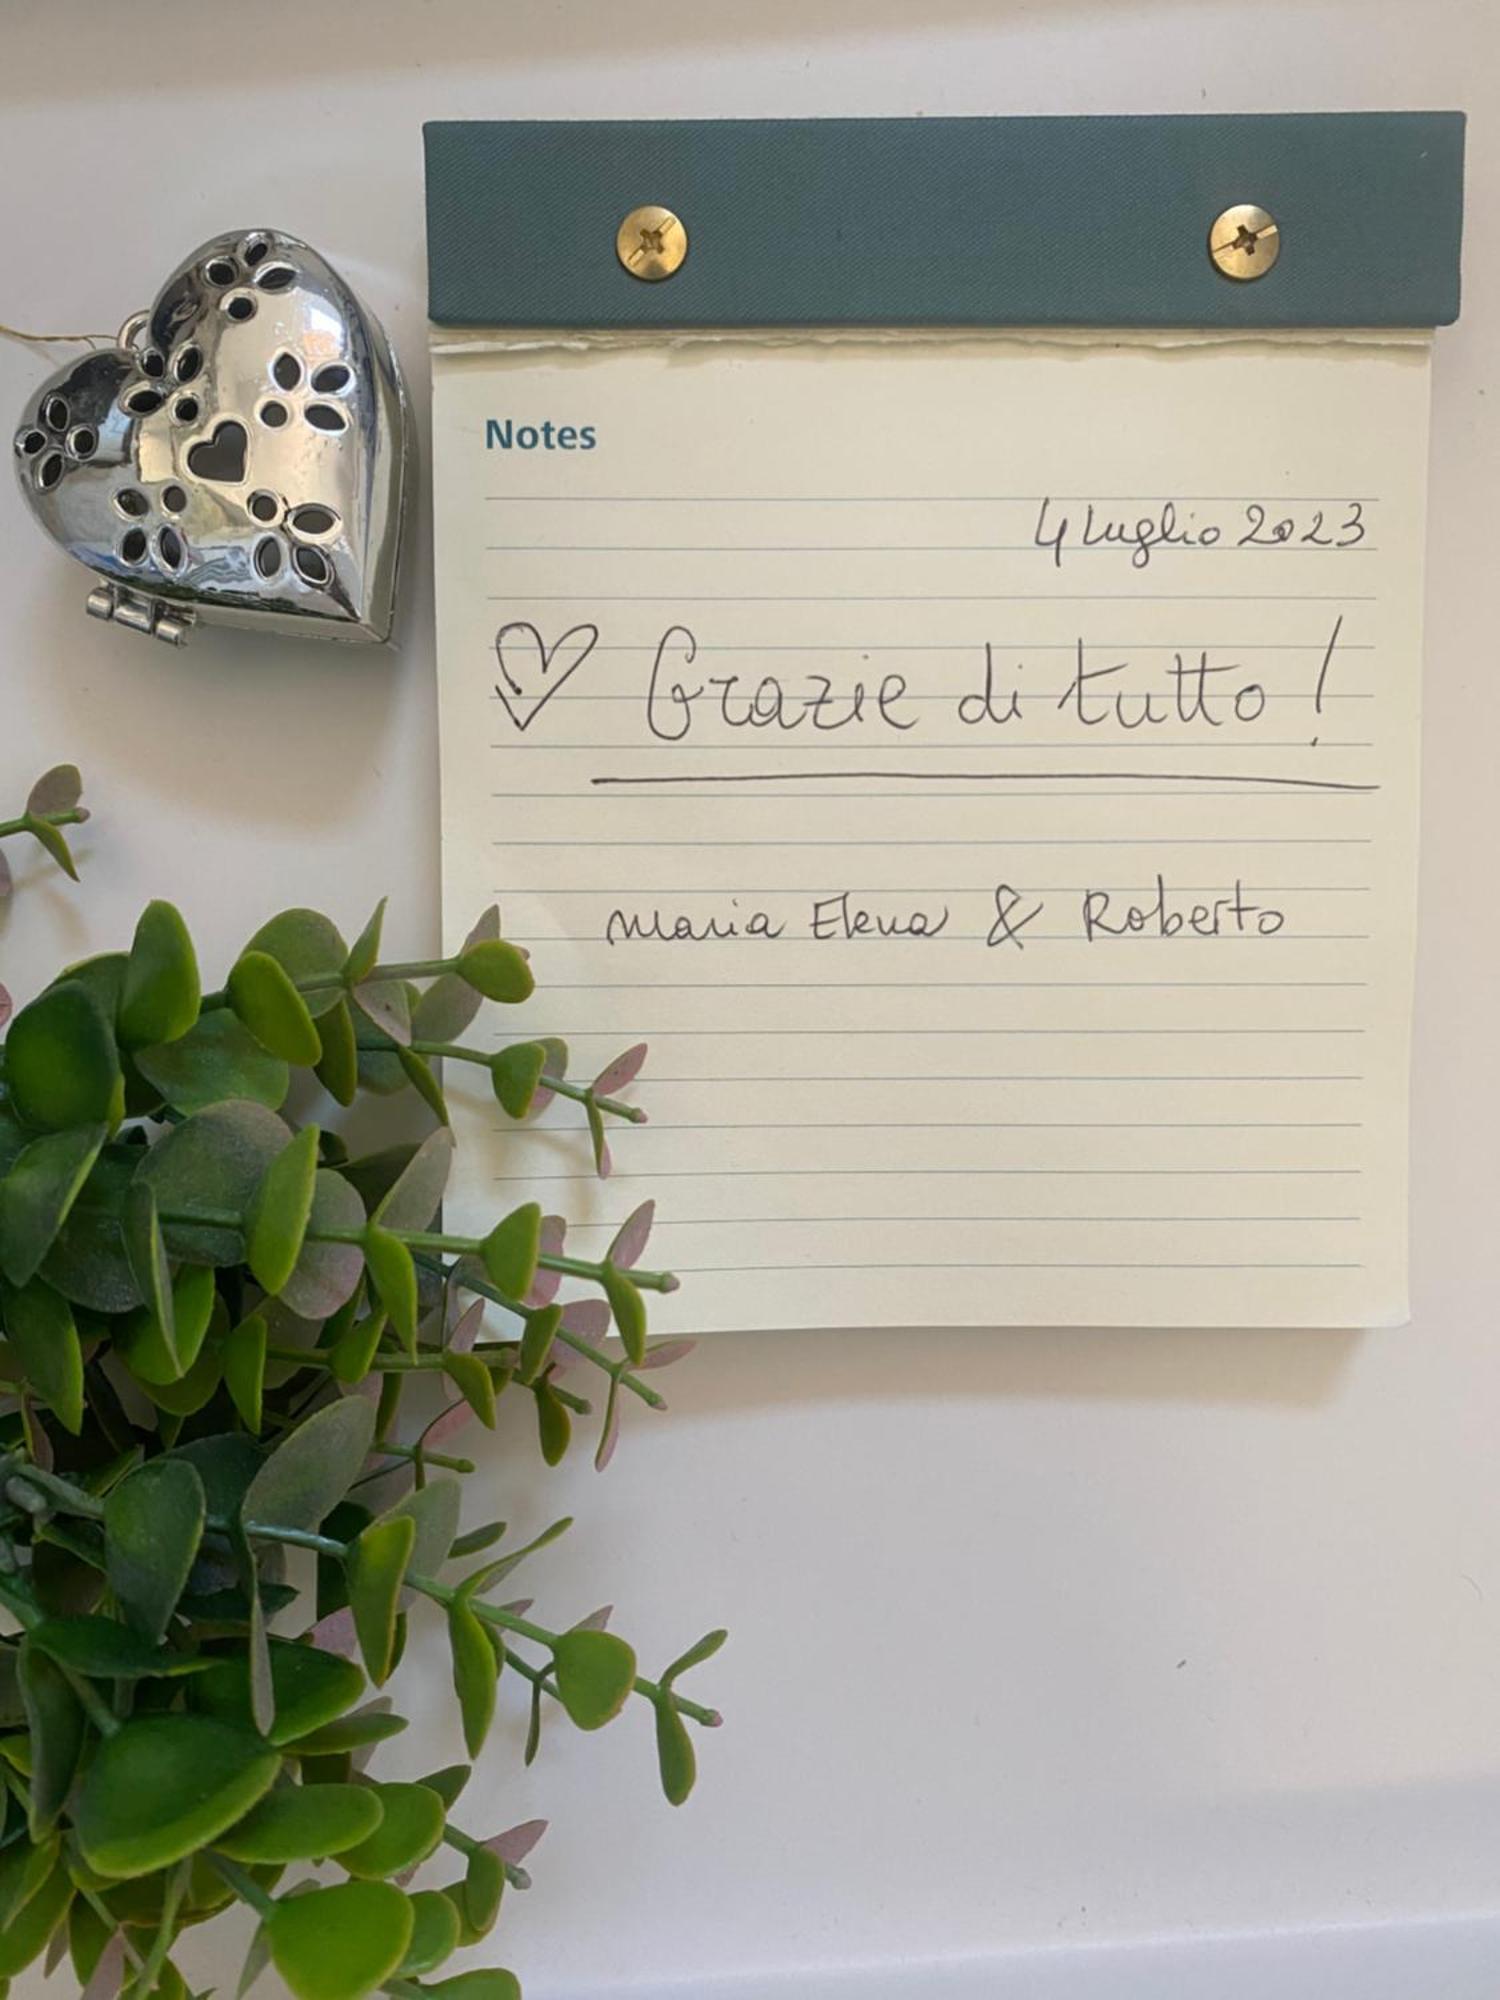 Notes
4 Luglio 2023
Grazie di tutto!
Maria Elena & Roberto